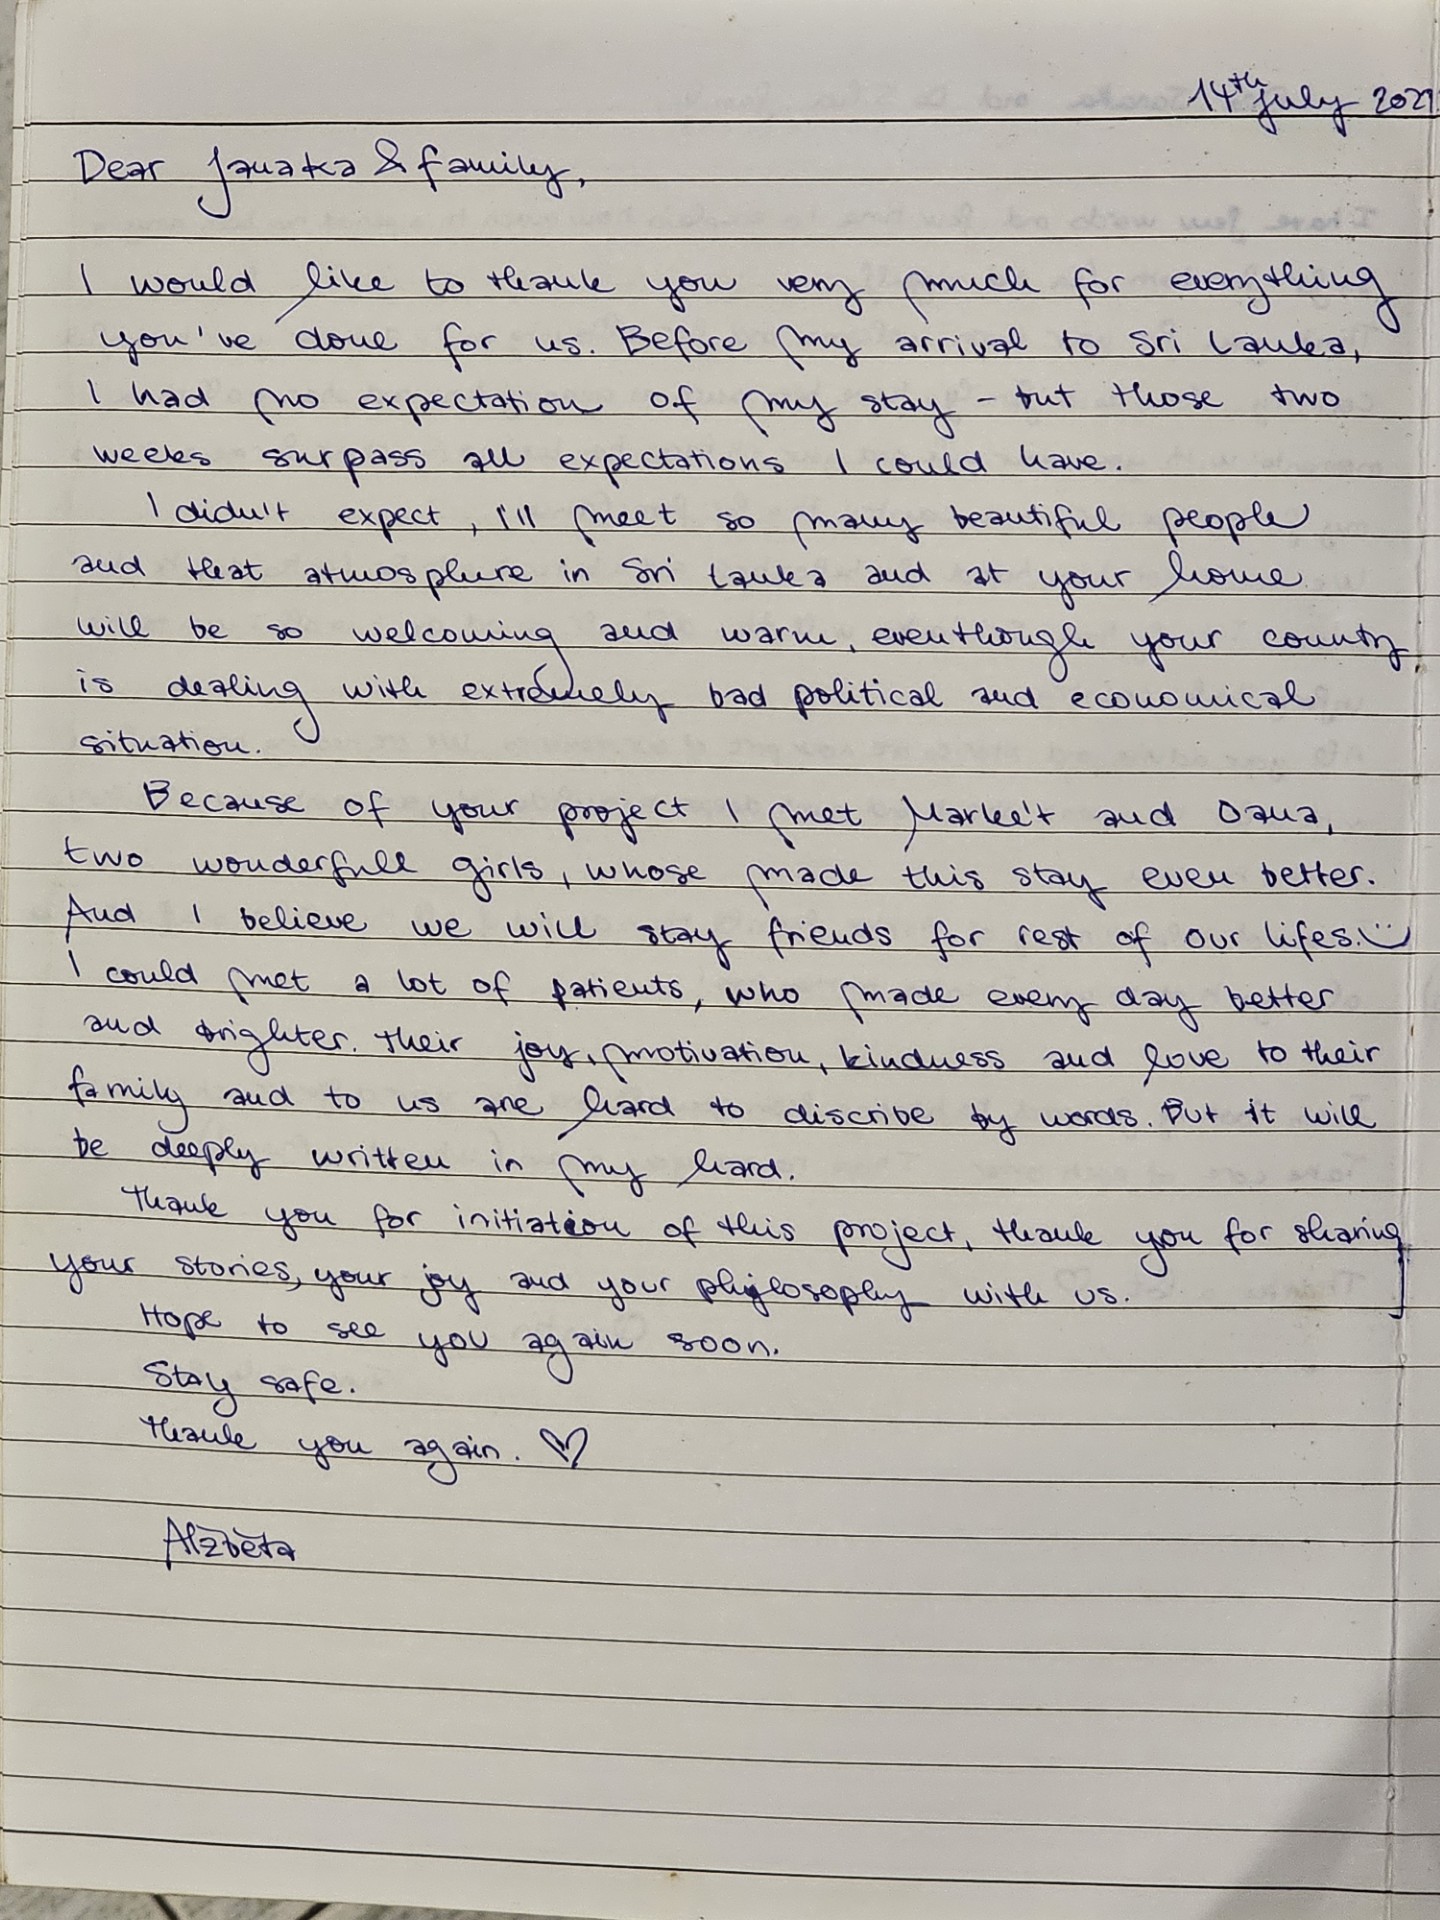 14th july 202
Dear Janaka & family,
I would like to thank you very much for everything
you've done for us. Before my arrival to Sri Lanka,
I had no expectation of my stay - but those two
weeks surpass all expectations I could have.
I didn't expect, I'll meet so many beautiful people
and that atmosphere in Sri Lanka and at your home
will be so welcoming and warm, eventhough your county
is dealing with extremely bad political and economical
situation.
Because of your project I met and Dana,
two wonderfull girls, whose made this stay even better.
And I believe we will stay friends for rest of our lifes.
I could met a lot of patients, who made every day better
and brighter. Their joy, motivation, kindness and love to their
family and to us are hard to discribe by words. But it will
be deeply written in my hard.
Thank you for initiation of this project, thank you for sharing
your stories, your joy and your with us.
Hope to see you again soon.
Stay safe.
Thank you again. ♡
Alžběta